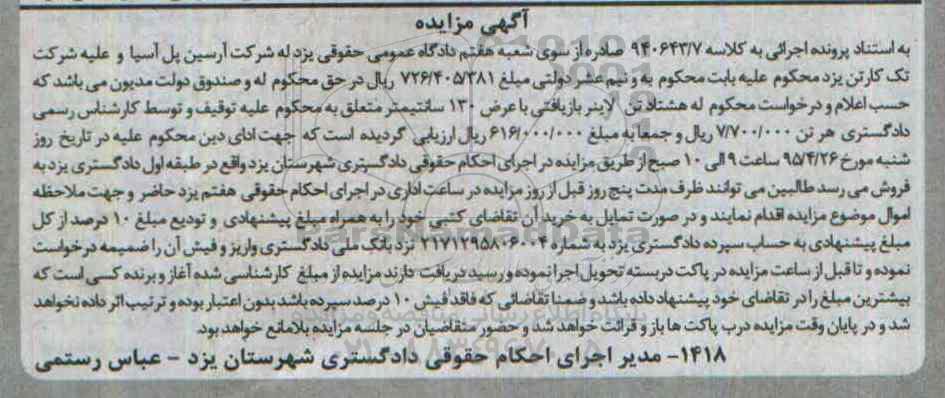 آگهی مزایده
به استناد پرونده اجرائی به کلاسه ۹۴۰۶۴۳/۷ صادره از سوی شعبه هفتم دادگاه عمومی حقوقی یزد له شرکت آرسین پل آسیا و علیه شرکت
تک کارتن یزد محکوم علیه بابت محکوم به و نیم عشر دولتی مبلغ ۷۲۶/۴۰۵/۳۸۱ ریال در حق محکوم له و صندوق دولت مدیون می باشد که
حسب اعلام و درخواست محکوم له هشتاد تن لاینر بازیافتی با عرض ۱۳۰ سانتیمتر متعلق به محکوم علیه توقیف و توسط کارشناس رسمی
دادگستری هر تن ۷/۷۰۰/۰۰۰ ریال و جمعا به مبلغ ۶۱۶/۰۰۰/۰۰۰ ریال ارزیابی گردیده است که جهت ادای دین محکوم علیه در تاریخ روز
شنبه مورخ ۹۵/۴/۲۶ ساعت ۹ الی ۱۰ صبح از طریق مزایده در اجرای احکام حقوقی دادگستری شهرستان یزد واقع در طبقه اول دادگستری یزد به
فروش می رسد طالبین می توانند ظرف مدت پنج روز قبل از روز مزایده در ساعت اداری در اجرای احکام حقوقی هفتم یزد حاضر و جهت ملاحظه
اموال موضوع مزایده اقدام نمایند و در صورت تمایل به خرید آن تقاضای کتبی خود را به همراه مبلغ پیشنهادی و تودیع مبلغ ۱۰ درصد از کل
مبلغ پیشنهادی به حساب سپرده دادگستری یزد به شماره ۲۱۷۱۲۹۵۸۰۶۰۰۴ نزد بانک ملی دادگستری واریز و فیش آن را ضمیمه درخواست
نموده و تا قبل از ساعت مزایده در پاکت دربسته تحویل اجرا نموده و رسید دریافت دارند مزایده از مبلغ کارشناسی شده آغاز و برنده کسی است که
بیشترین مبلغ را در تقاضای خود پیشنهاد داده باشد و ضمنا تقاضائی که فاقد فیش ۱۰ درصد سپرده باشد بدون اعتبار بوده و ترتیب اثر داده نخواهد
شد و در پایان وقت مزایده درب پاکت ها باز و قرائت خواهد شد و حضور متقاضیان در جلسه مزایده بلامانع خواهد بود.
۱۴۱۸- مدیر اجرای احکام حقوقی دادگستری شهرستان یزد - عباس رستمی
ParsNamadData